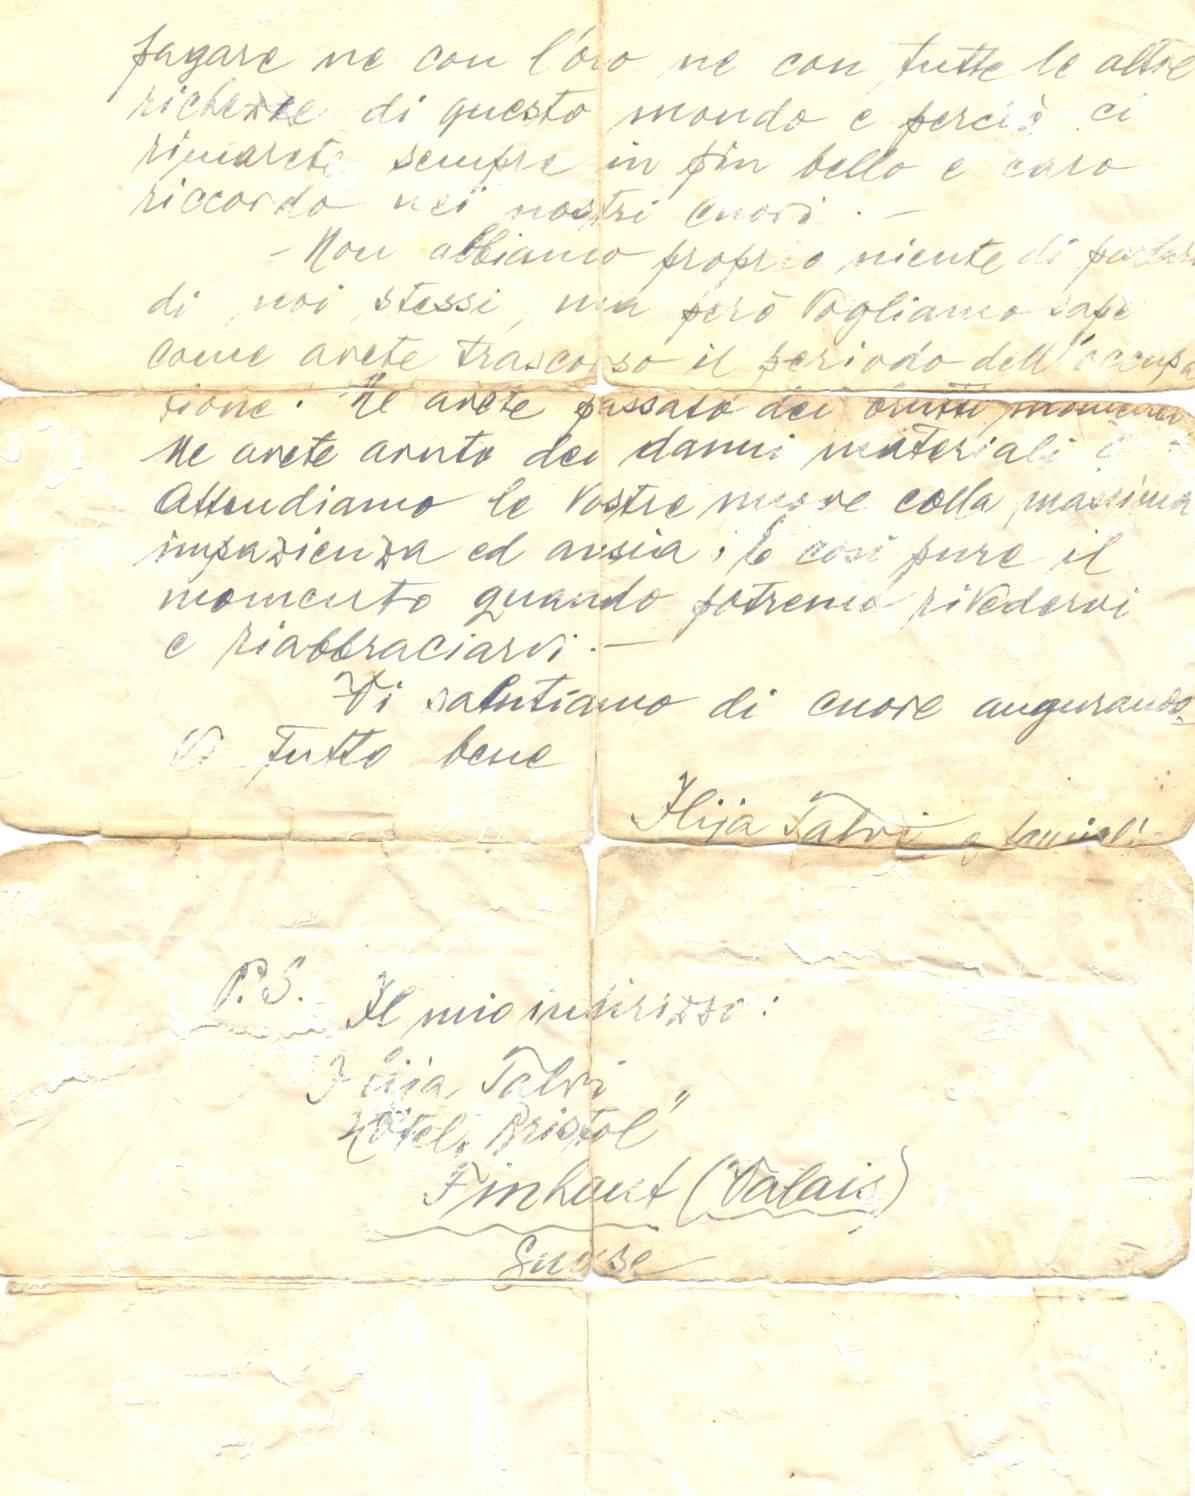 pagare ne con l'oro ne con tutte le altre
richezze di questo mondo e perciò ci
rimarete sempre in più bello e caro
riccordo nei nostri cuori. —
- Non abbiamo proprio niente di parlare
di noi stessi, ma però vogliamo sape
come avete trascorso il periodo dell'occupa
zione. Ne avete passato dei brutti momenti
Ne avete avuto dei danni materiali
Attendiamo le Vostre nuove colla massima
impazienza ed ansia, e così pure il
momento quando potremo rivedervi
e riabbraciarvi. —
Vi salutiamo di cuore augurando-
Vi tutto bene
Ilija Talvi e famigli
P.S. Il mio indirizzo:
Ilija Talvi
Hôtel "Bristol"
Finhaut (Valais)
Suisse